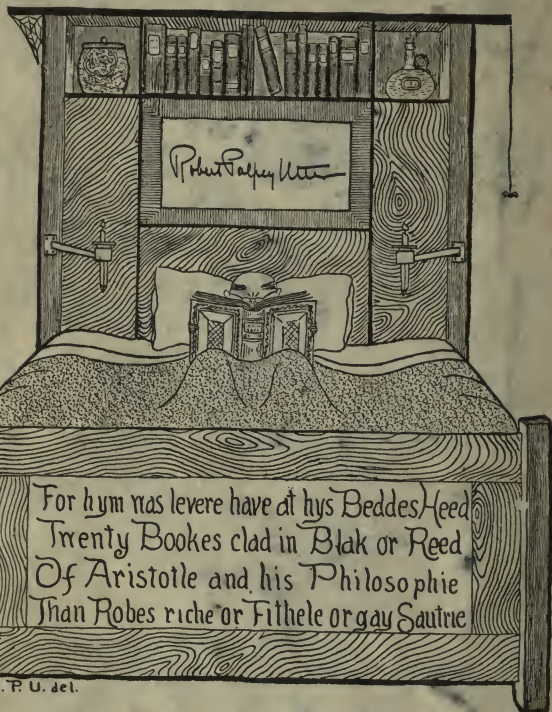 Robert Palfrey Utter
For hym was levere have at hys Beddes Heed
Twenty Bookes clad in Blak or Reed
Of Aristotle and his Philosophie
Than Robes riche or Fithele or gay Sautrie
. P. U. del.